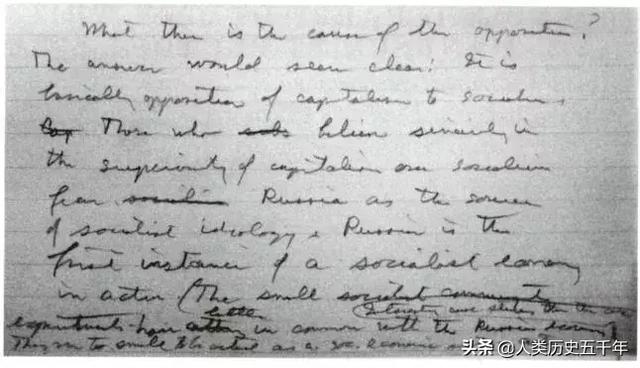 What then is the cause of the opposition?
The answer would seem clear: It is
basically opposition of capitalism to socialism
Those who believe sincerely in
the superiority of capitalism over socialism
fear socialism Russia as the source
of socialist ideology & Russia is the
first instance of a socialist economy
in action (The small socialist
little
experiments have in common with the Russian economy
They are to small to as a soc. economic
头条 @人类历史五千年